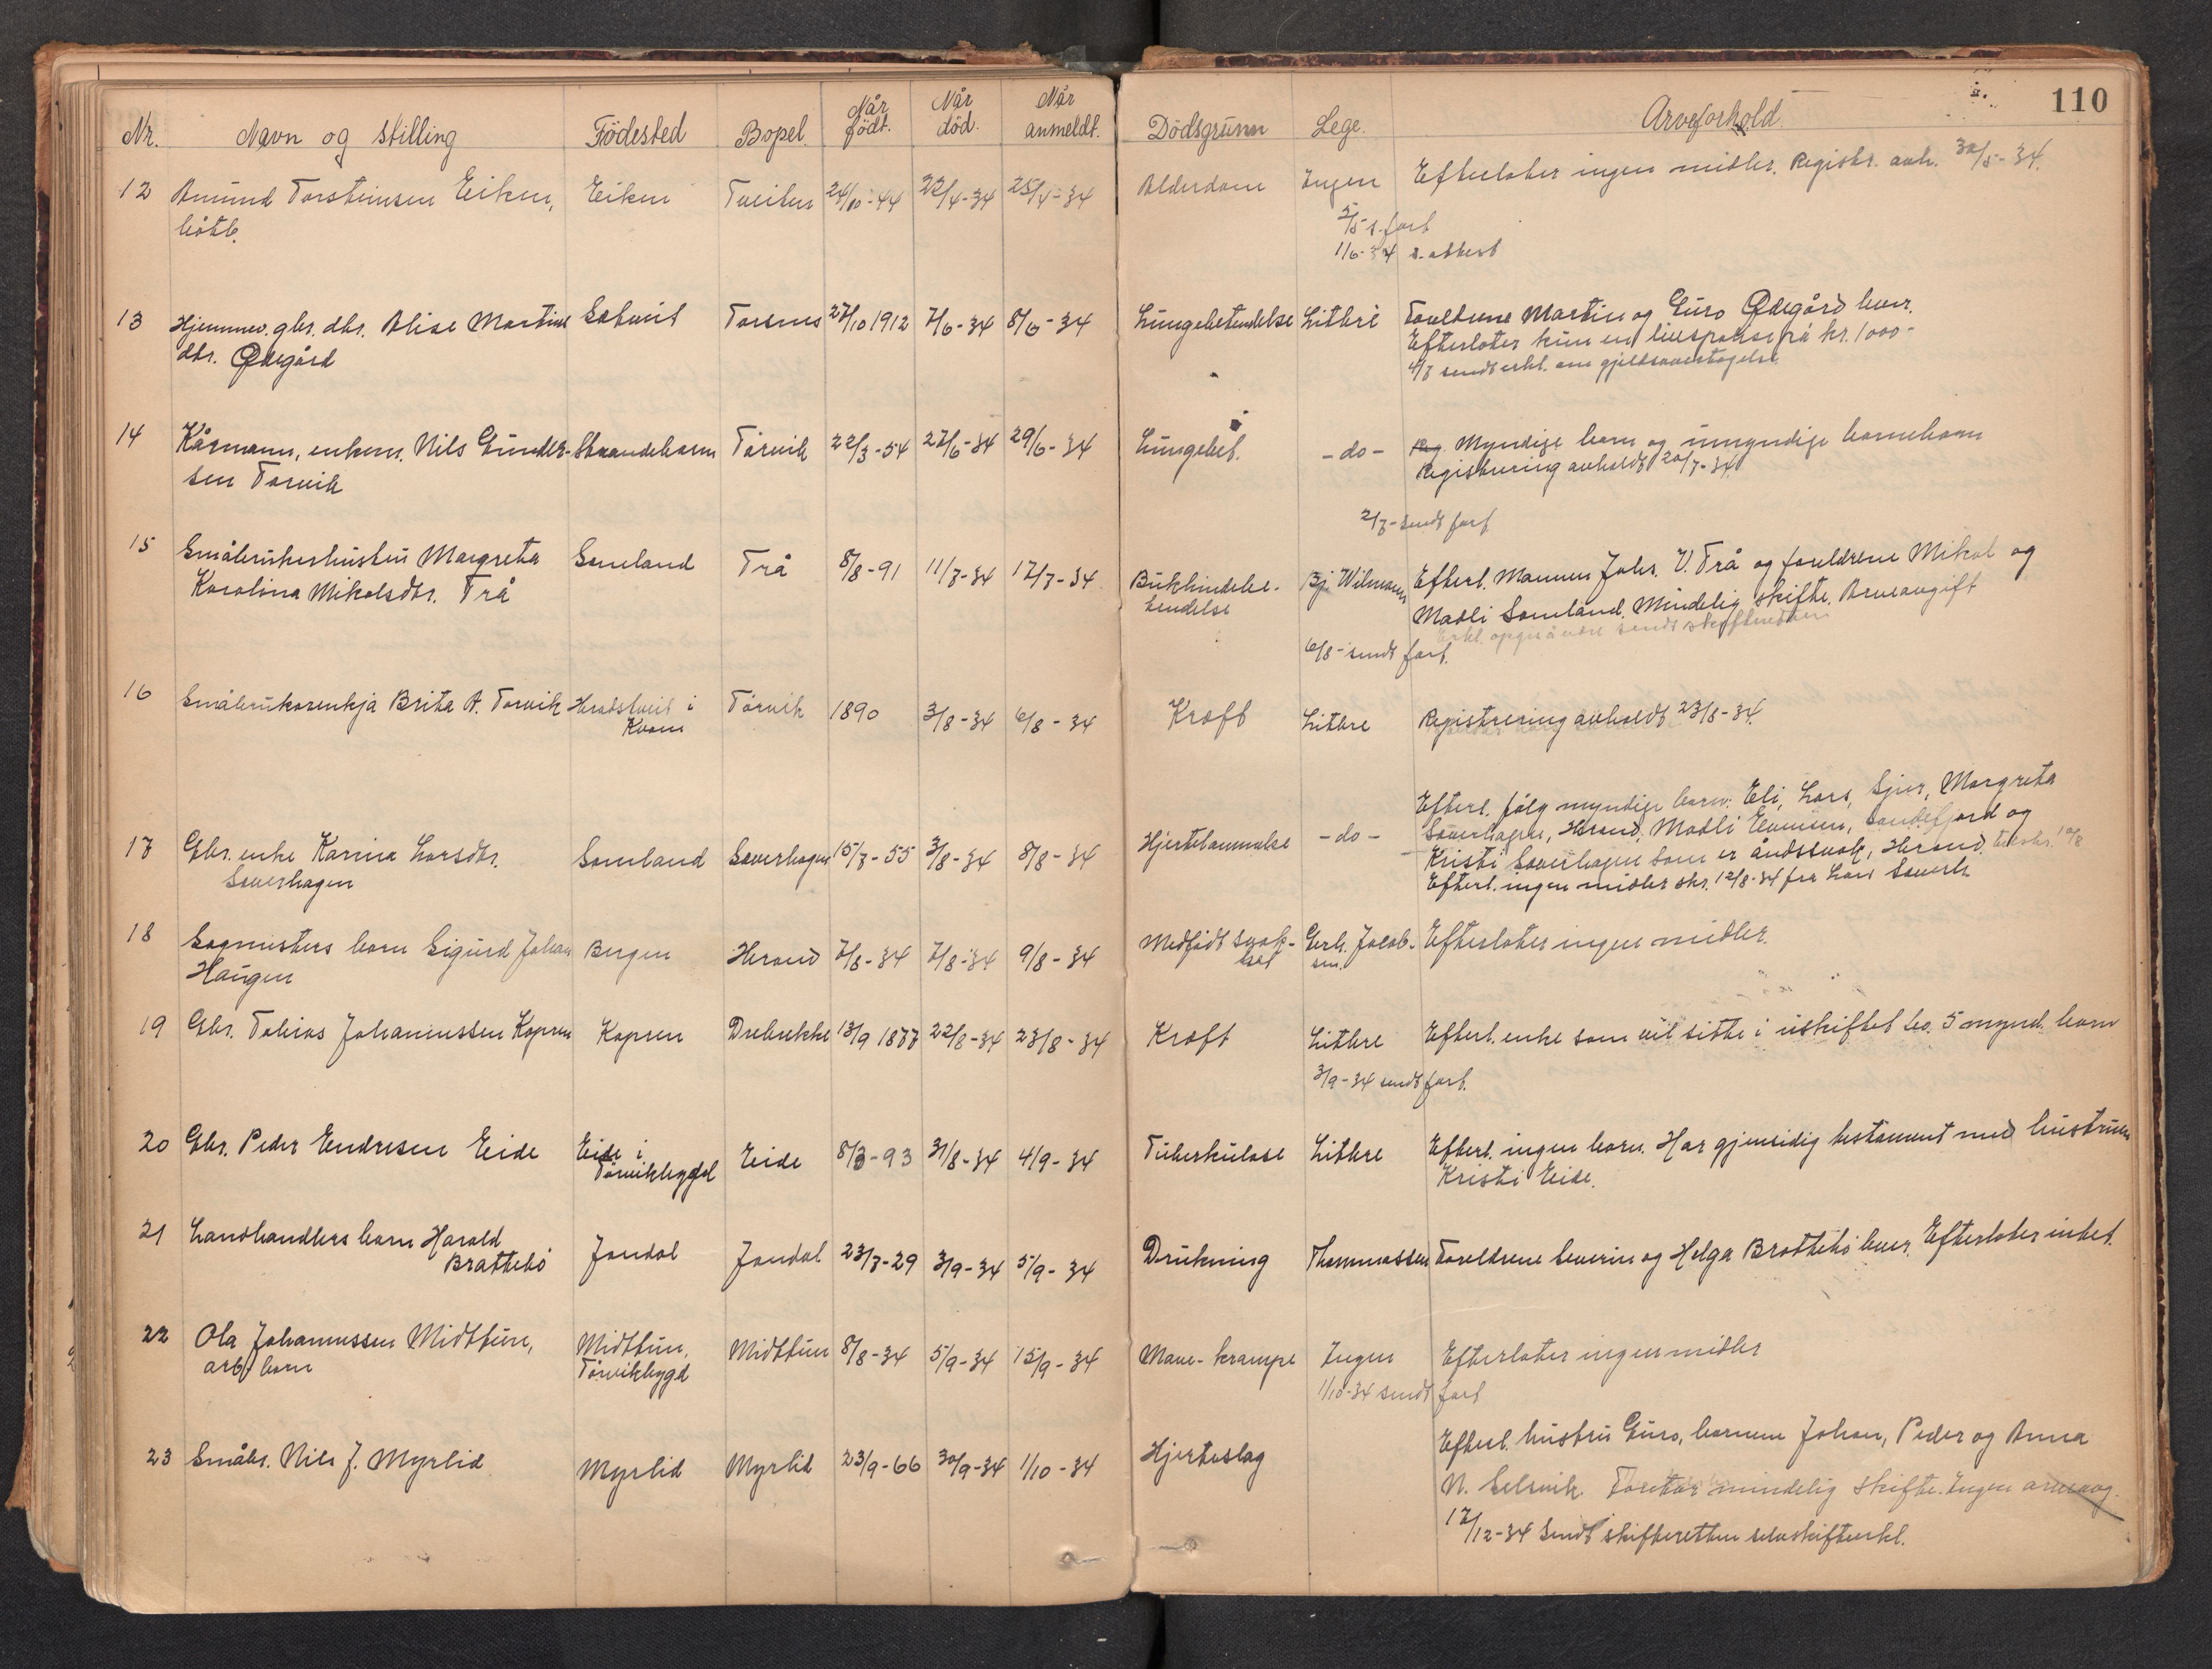 110
Nr. Navn og stilling Födested Bopel. Når födt. Når död. Når anmeldt. Dödsgrunn Lege. Arveforhold
12 Amund Torsteinsen Eiken, Eiken Tveiten 24/10-44 22/4-34 25/4-34 Alderdom Ingen Efterlater ingen midler. Registr. avh. 30/5-34.
kåtb.
2/5 s. fort
1/6-34 s. attest
13 Hjemmev. gbr. dtr. Alise Martine Solsvit Torsnes 27/10 1912 7/6-34 8/6-34 Lungebetendelse Litleré Foreldrene Martin og Guro Ødegård lever.
dtr. Ødegård Efterlater kun en livspolise på kr. 1000-
4/7 sendt erkl. om gjeldsovertagelse
14 Kårmann, enkem. Nils Gunder- Strandebarm Törvik 22/3-54 27/6-34 29/6-34 Lungebet. -do- Myndige barn og umyndige barnebarn
sen Torvik Registrering avholdt 20/7-34
2/7-sendt fort
15 Småbrukerhustru Margreta Samland Trå 8/8-91 11/7-34 17/7-34 Bukhindebe- Bj. Wilmann Efterl. Mannen Johs. V. Trå og foreldrene Mikal og
Karolina Mikalsdtr. Trå tendelse Madli Samland. Mindelig skifte. Arveavgift
6/8-sendt fort.
16 Småbrukerenkja Brita A. Torvik Heradstveit i Törvik 1890 3/8-34 6/8-34 Kreft Litlere Registrering avholdt 23/8-34.
Kvam
Efterl. fölg. myndige barn: Eli, Lars, Sjur, Margreta
17 Gbr. enke Karina Larsdtr. Samland Saverhagen 15/7-55 3/8-34 8/8-34 Hjertelammelse -do- Saverhagen, Herand, Madli Evensen, Sandefjord og
Saverhagen Kristi Saverhagen som er åndssvak, Herand.
Efterl. ingen midler skr. 12/8-34 fra Lars Saverh.
18 Sagmesters barn Sigurd Johan Bergen Herand 7/8-34 7/8-34 9/8-34 Medfödt svak- Gerh. Jacob- Efterlater ingen midler.
Haugen het sen.
19 Gbr. Tobias Johannessen Kopren Kopren Drebrekke 13/9 1877 22/8-34 23/8-34 Kreft Litlere Efterl. enke som vil sitte i uskiftet bo. 5 mynd. barn
3/9-34 sendt fort.
20 Gbr. Peder Endresen Eide Eide i Eide 8/3-93 31/8-34 4/9-34 Tuberkulose Litlere Efterl. ingen barn. Har gjensidig testament med hustruen
Törvikbygd Kristi Eide.
21 Landhandlers barn Harald Jondal Jondal 23/7-29 3/9-34 5/9-34 Drukning Thommassen Foreldrene Severin og Helga Brattebö lever. Efterlater intet.
Brattebö
22 Ola Johannessen Midttun, Midttun, Midttun 8/8-34 5/9-34 15/9-34 Mave-krampe Ingen Efterlater ingen midler
arb. barn Törvikbygd
1/10-34 sendt fort
Efterl. hustru Guro, barnene Johan, Peder og Anna
23 Småbr. Nils J. Myrlid Myrlid Myrlid 23/9-66 30/9-34 1/10-34 Hjerteslag
N. Selsvik. Foretar mindelig skifte. Ingen arveavg.
17/12-34 Sendt skifteretten selvskifteerkl.